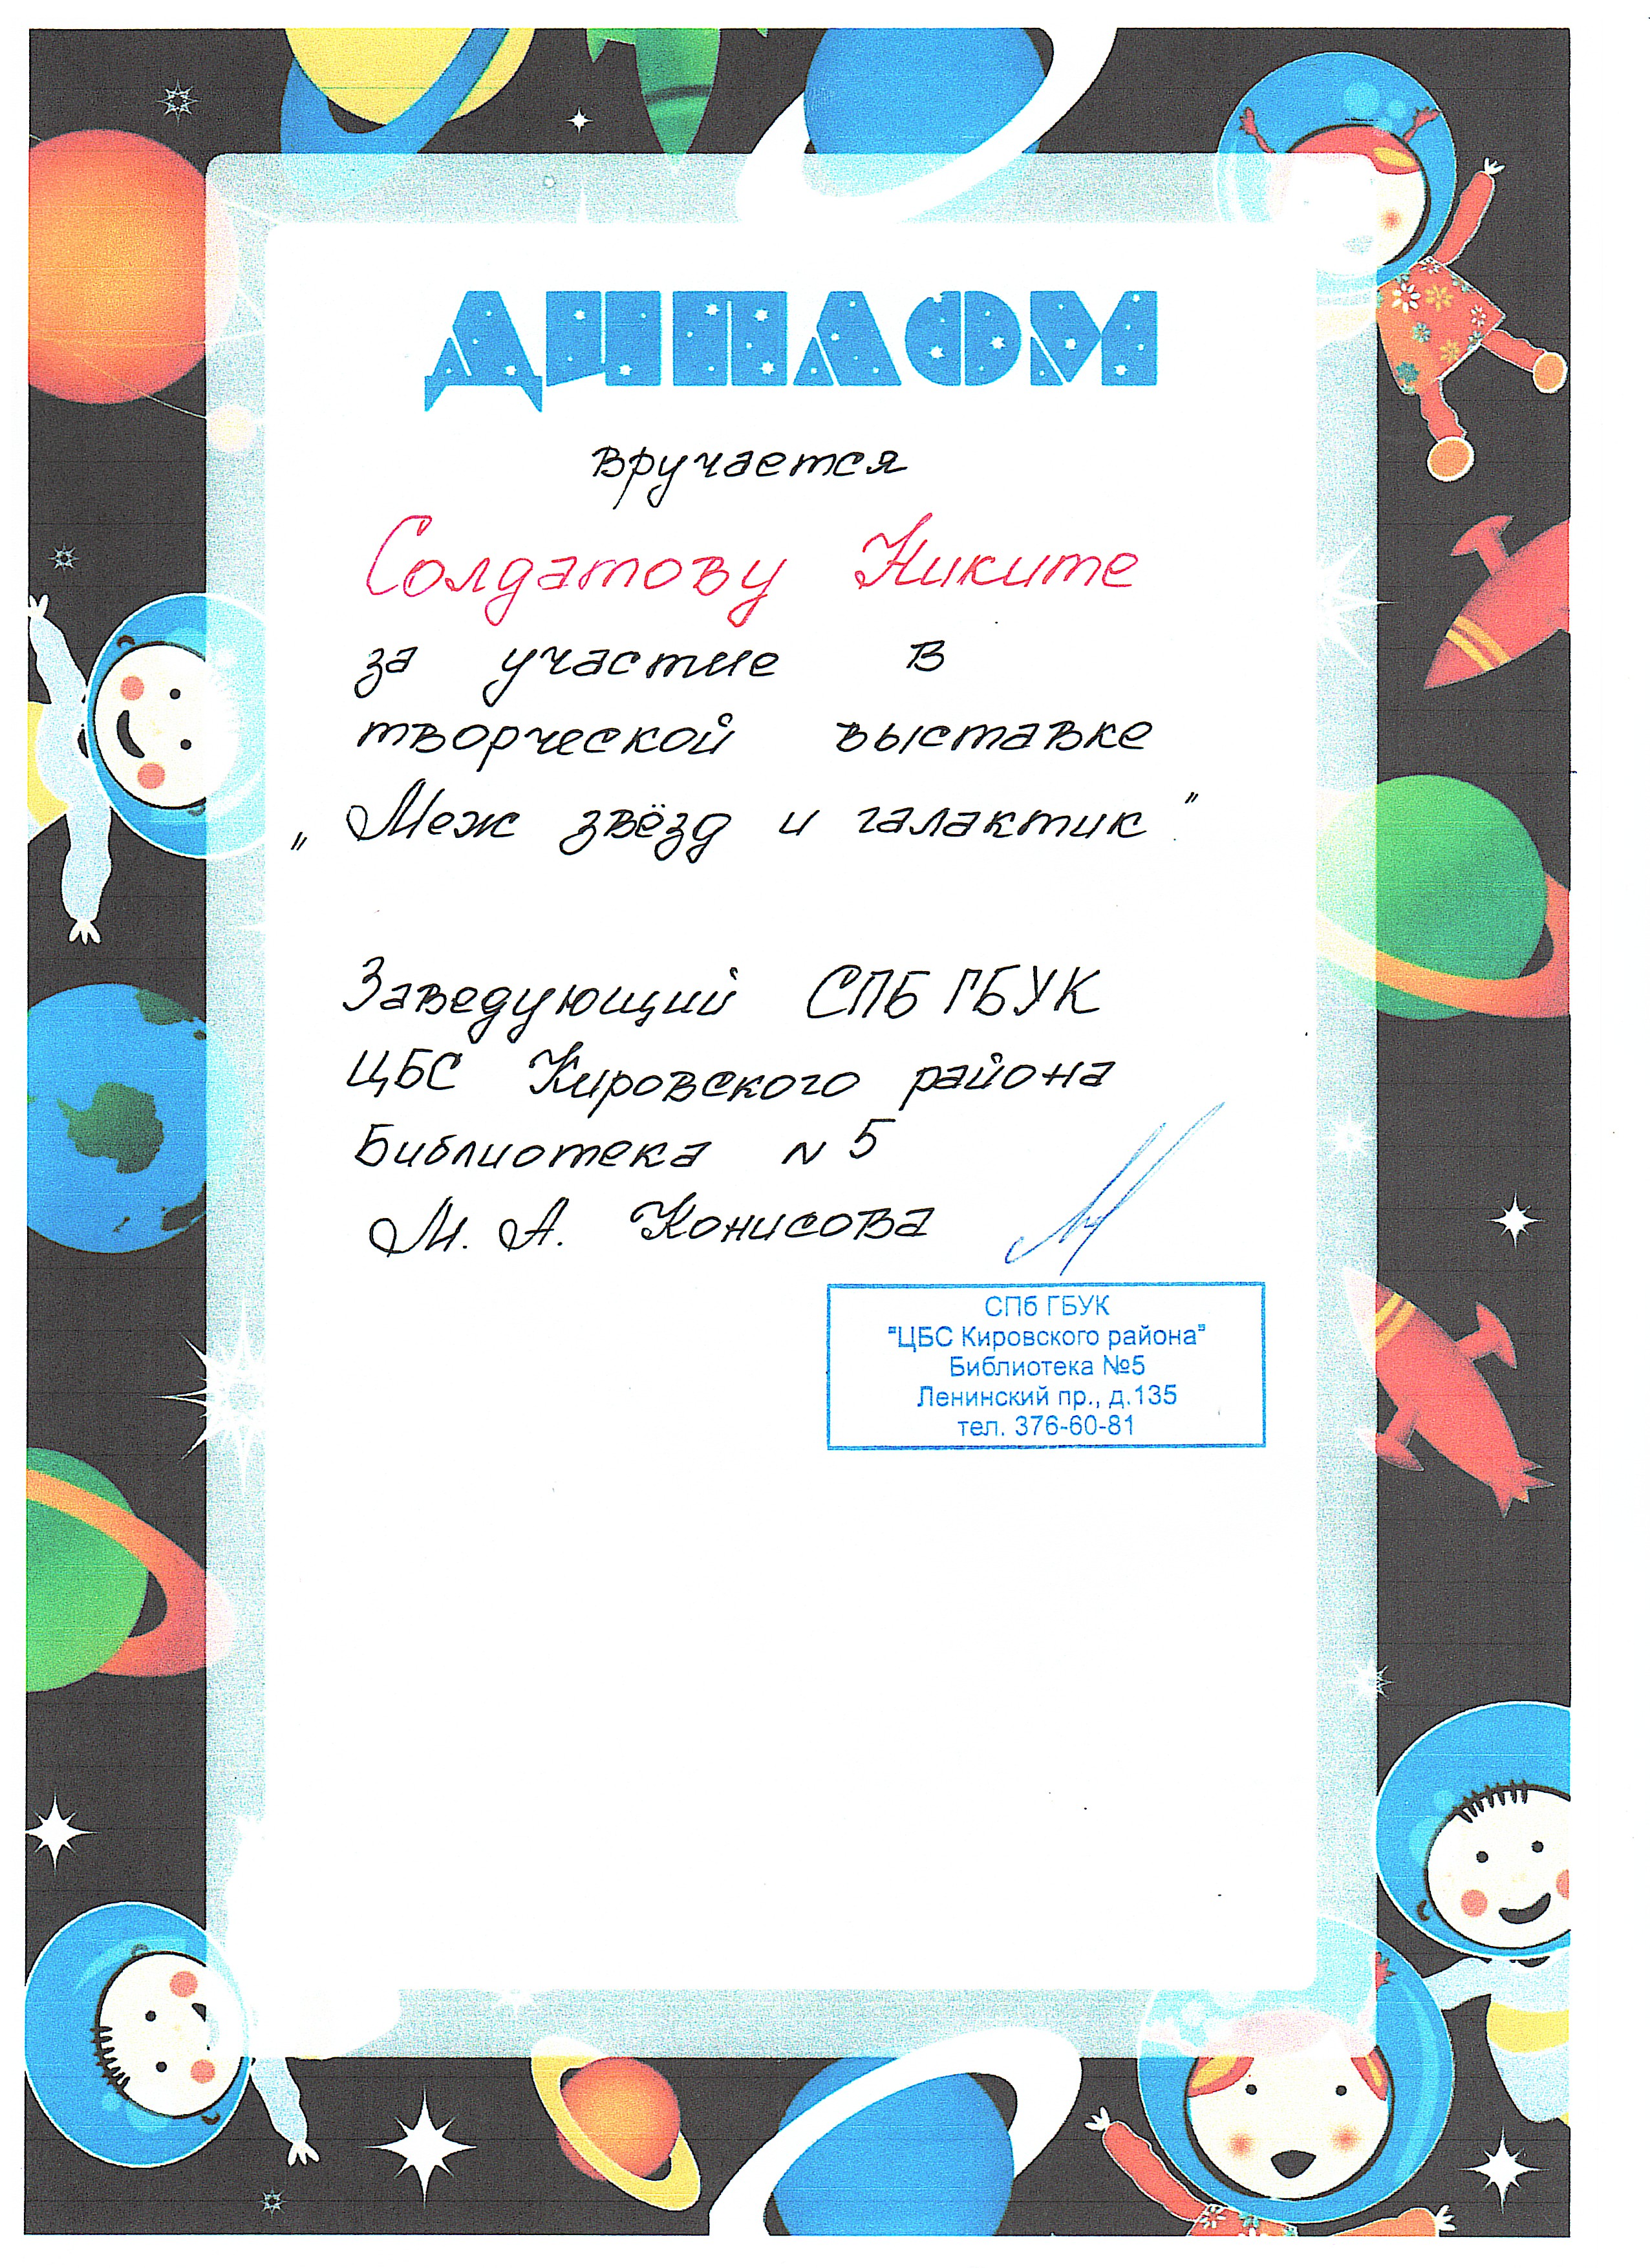 ДИПЛОМ
вручается
Солдатову Никите
за участие в
творческой выставке
„Меж звёзд и галактик"
Заведующий СПБ ГБУК
ЦБС Кировского района
Библиотека N 5
М. А. Конисова
СПб ГБУК
"ЦБС Кировского района"
Библиотека №5
Ленинский пр., д.135
тел. 376-60-81